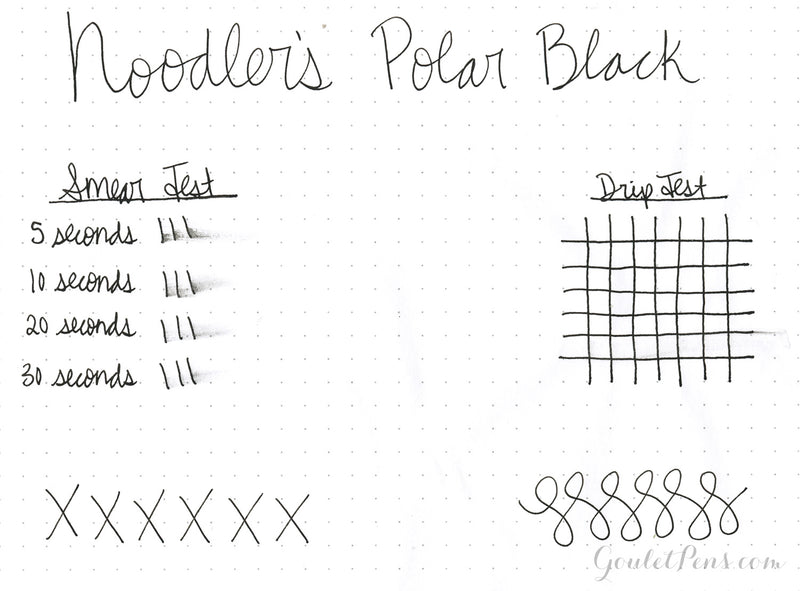 Noodler's Polar Black
Smear Test
5 seconds
10 seconds
20 seconds
30 seconds
Drip Test
X X X X X X
GouletPens.com